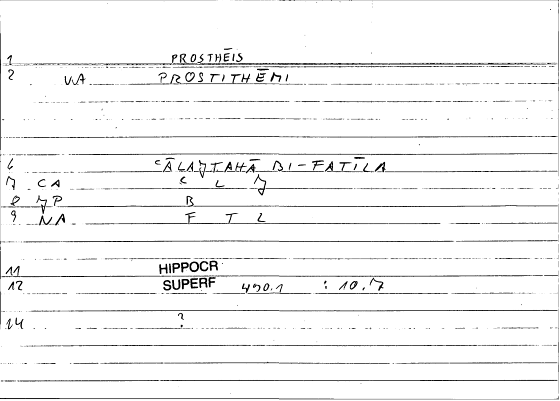 1 PROSTHĒIS
2 VA PROSTITHĒMI
6 ʿĀLAǦTAHĀ BI-FATĪLA
7 CA ʿ L Ǧ
8 ǦP B
9 NA F T L
11 HIPPOCR
12 SUPERF : 10.7
14 ?